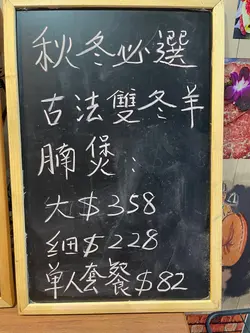 秋冬必選
古法雙冬羊
腩煲:
大$358
细$228
单人套餐$82